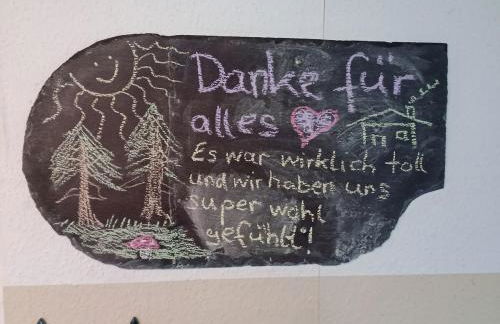 Danke für
alles
Es war wirklich toll
und wir haben uns
super wohl
gefühlt!